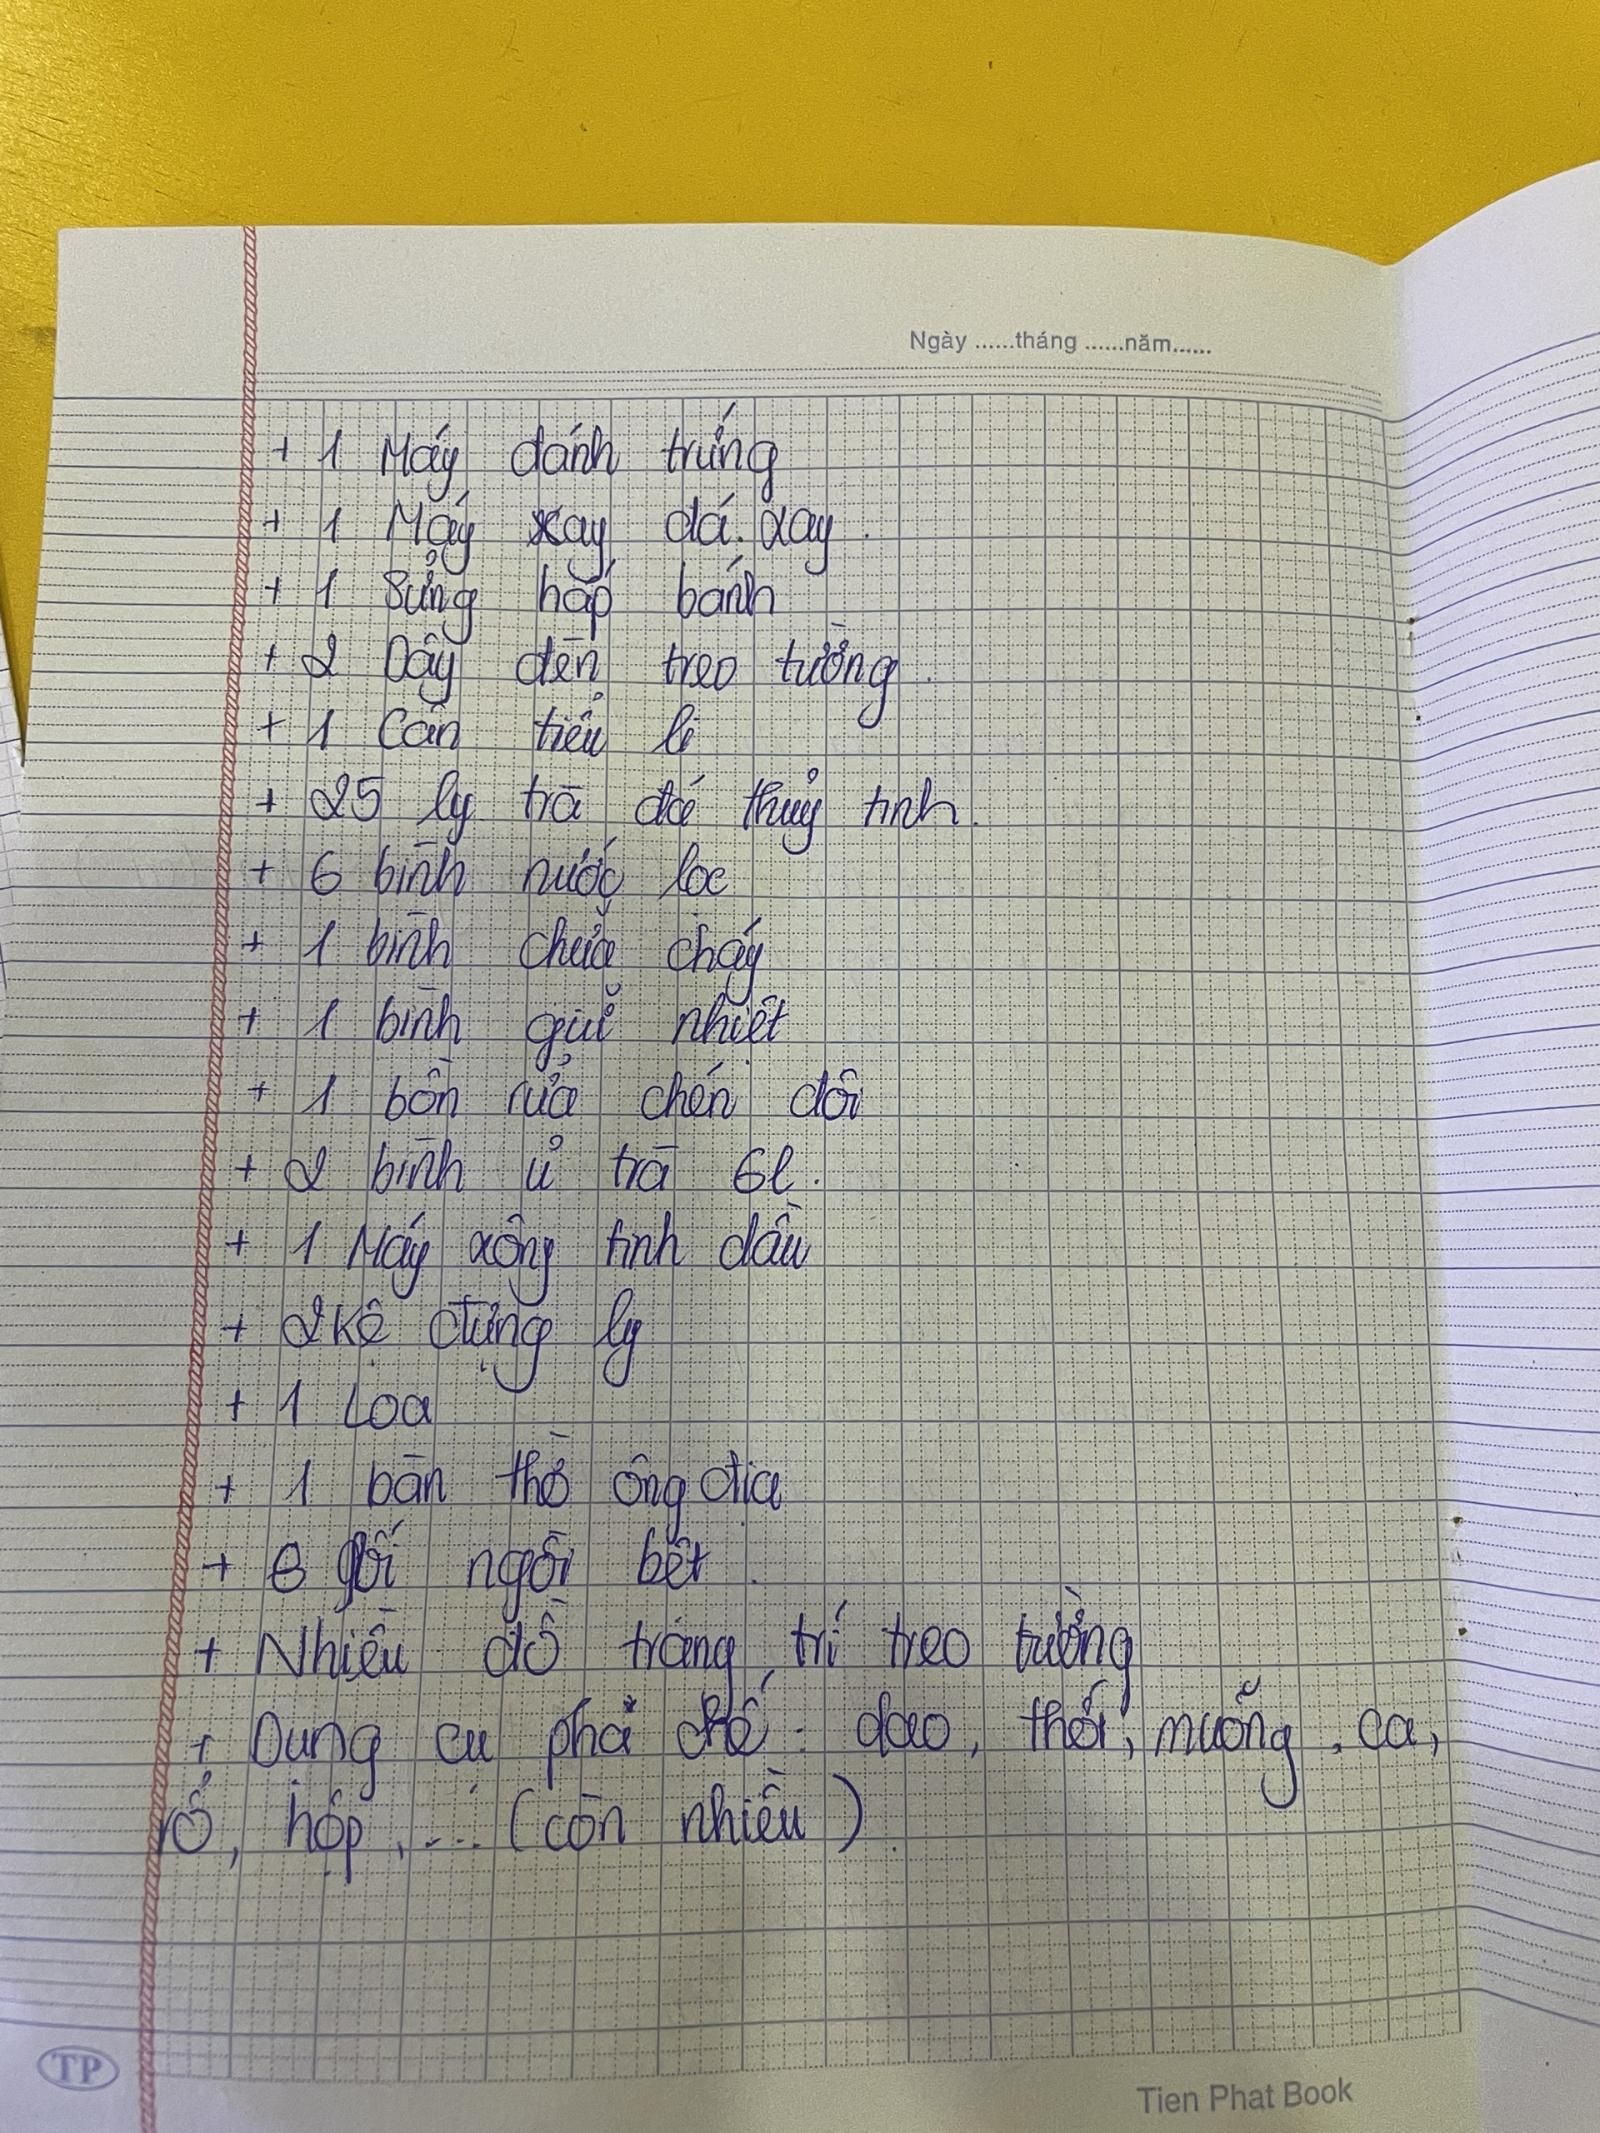 Ngày ......tháng ......năm......
+ 1 Máy đánh trứng
+ 1 Máy xay đá xay.
+ 1 Sửng hấp bánh
+ 2 Dây đèn treo tường.
+ 1 Cân tiểu li
+ 25 ly trà đá thuỷ tinh.
+ 6 bình nước lọc
+ 1 bình chữa cháy
+ 1 bình giữ nhiệt
+ 1 bồn rửa chén đôi
+ 2 bình ủ trà 6l.
+ 1 Máy xông tinh dầu
+ 2 Kệ đựng ly
+ 1 Loa
+ 1 bàn thờ ông địa
+ gối ngồi bệt.
+ Nhiều đồ trang trí treo tường
+ Dụng cụ pha chế: dao, thới, muỗng, ca,
rổ, hộp, ... (còn nhiều).
TP
Tien Phat Book